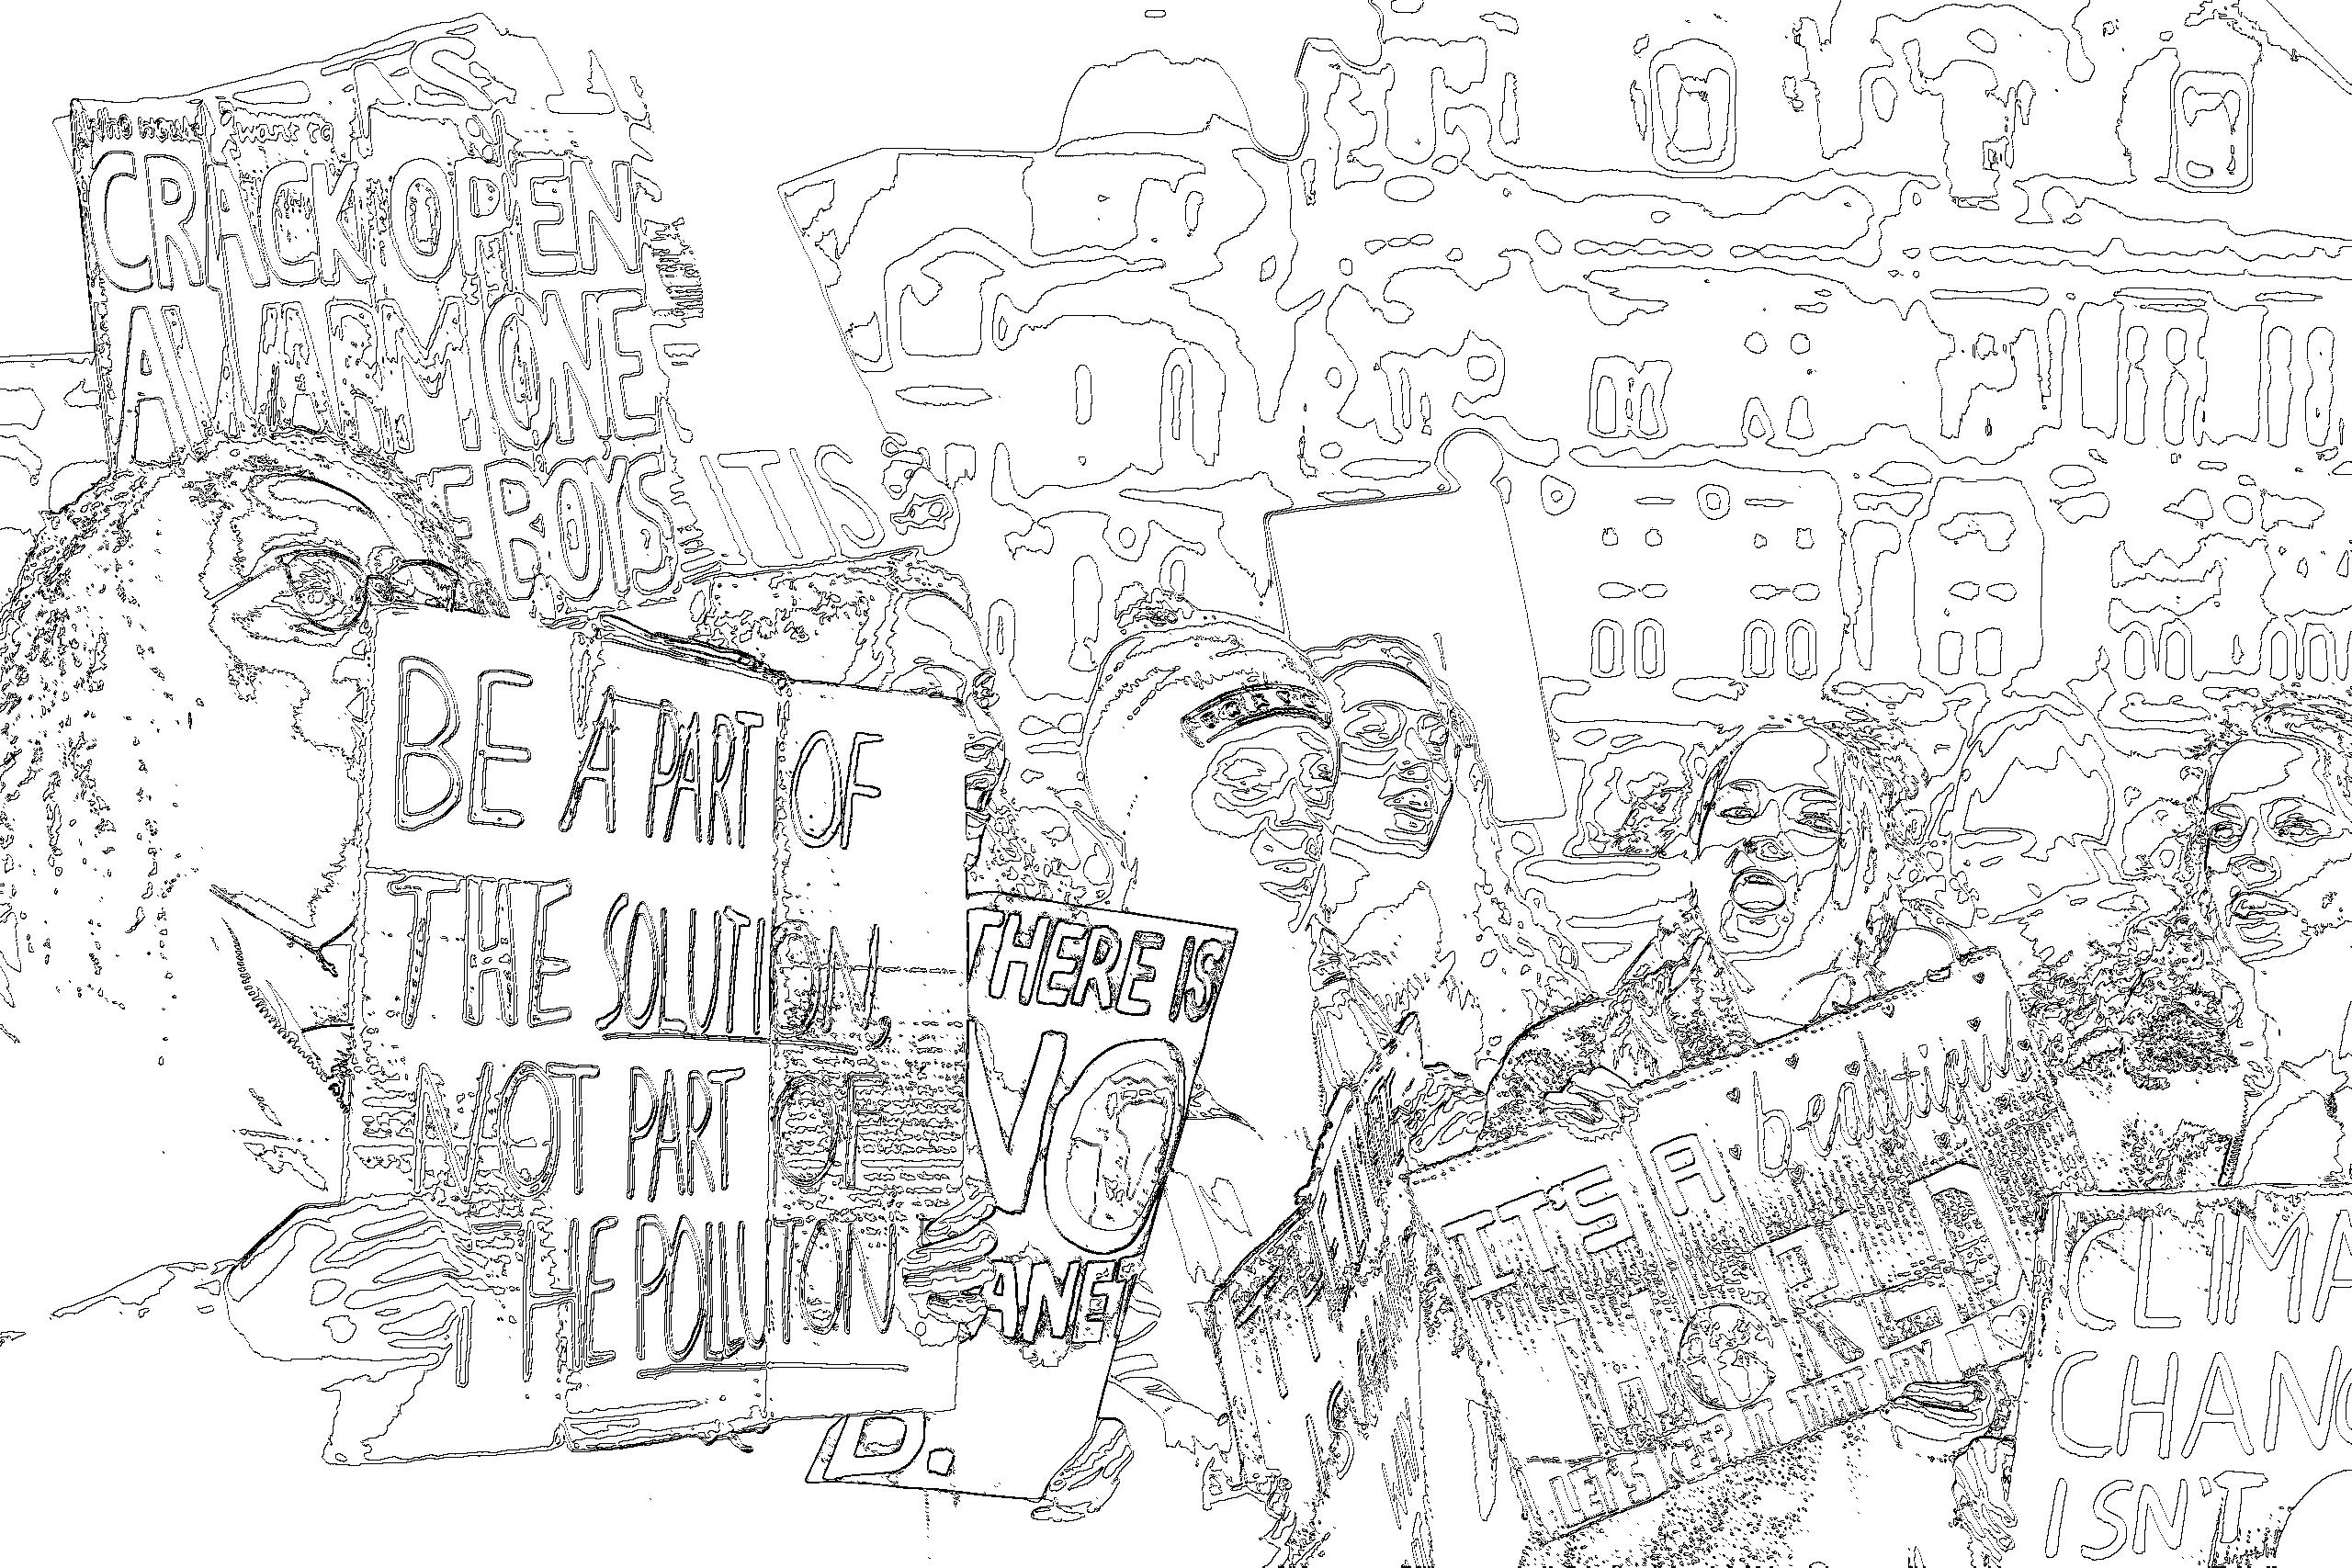 AS IT
Who would want to
CRACK OPEN
A WARM ONE
BOYS
IT IS
BE A PART OF
THE SOLUTION,
NOT PART OF
THE POLLUTION
THERE IS
NO
ANET
D.
IT'S A beautiful
WORLD
LET'S KEEP IT THAT WAY!
CLIMA
CHANG
ISN'T